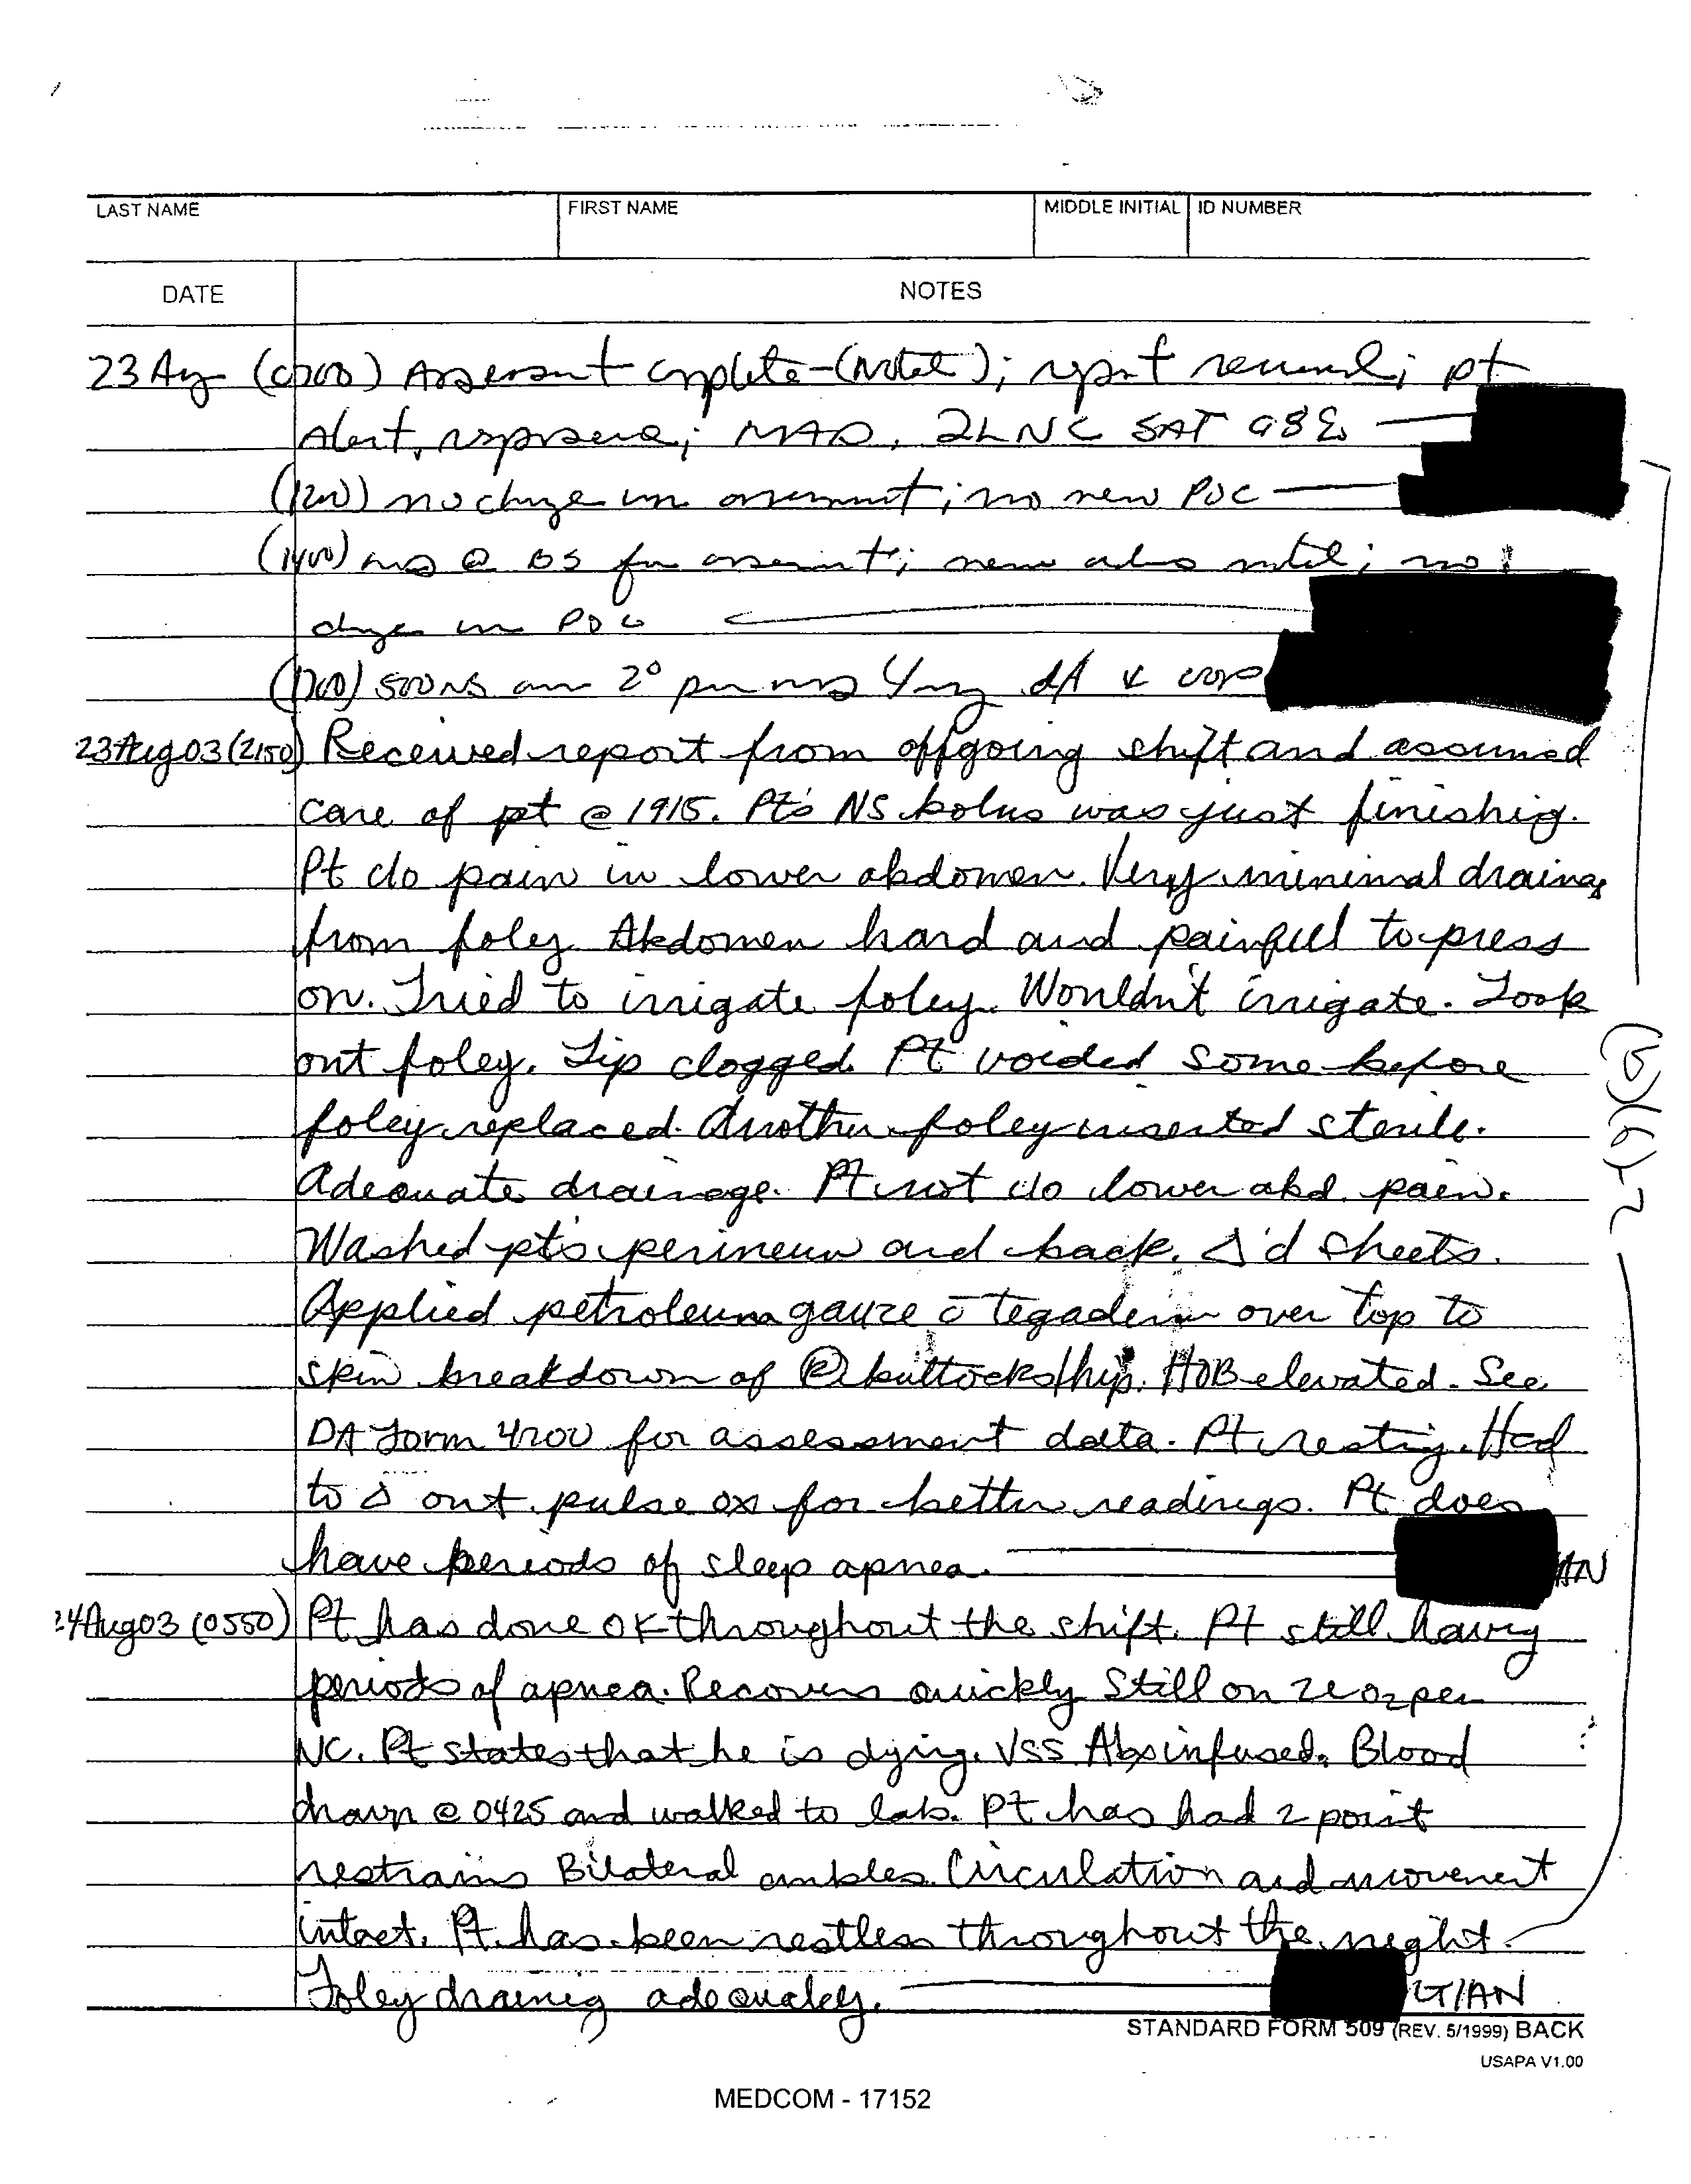 LAST NAME FIRST NAME MIDDLE INITIAL ID NUMBER
DATE NOTES
23 Aug (0700) Assessment complete - (noted); report received; pt
Alert, responsive; 2L NC SAT 98%
(1200) no change in assessment; no new POC
(1400) @ BS for assessment; new noted; no
change in POC
(1700) 500 NS 2° 4mg
23Aug03 (2150) Received report from offgoing shift and assumed
care of pt @ 1915. Pt's NS bolus was just finishing.
Pt c/o pain in lower abdomen. Very minimal drainag
from foley. Abdomen hard and painfull to press
on. Tried to irrigate foley. Wouldn't irrigate. Took
out foley. Tip clogged. Pt voided some before
foley replaced. Another foley inserted sterile.
Adequate drainage. Pt not c/o lower abd. pain.
Washed pt's perineum and back. Δ'd sheets.
Applied petroleum gauze c̄ tegaderm over top to
skin breakdown of Ⓡ buttocks/hip. HOB elevated. See
DA Form 4700 for assessment data. Pt resting. Had
to Δ out pulse ox for better readings. Pt does
have periods of sleep apnea. AN
24Aug03 (0550) Pt has done OK throughout the shift. Pt still having
periods of apnea. Recovers quickly. Still on 2L O2 per
NC. Pt states that he is dying. VSS. Abx infused. Blood
drawn @ 0425 and walked to lab. Pt has had 2 point
restrains Bilateral ankles. Circulation and movement
intact. Pt has been restless throughout the night.
Foley draining adequately. LT/AN
(b)(6)-2
STANDARD FORM 509 (REV. 5/1999) BACK
USAPA V1.00
MEDCOM - 17152